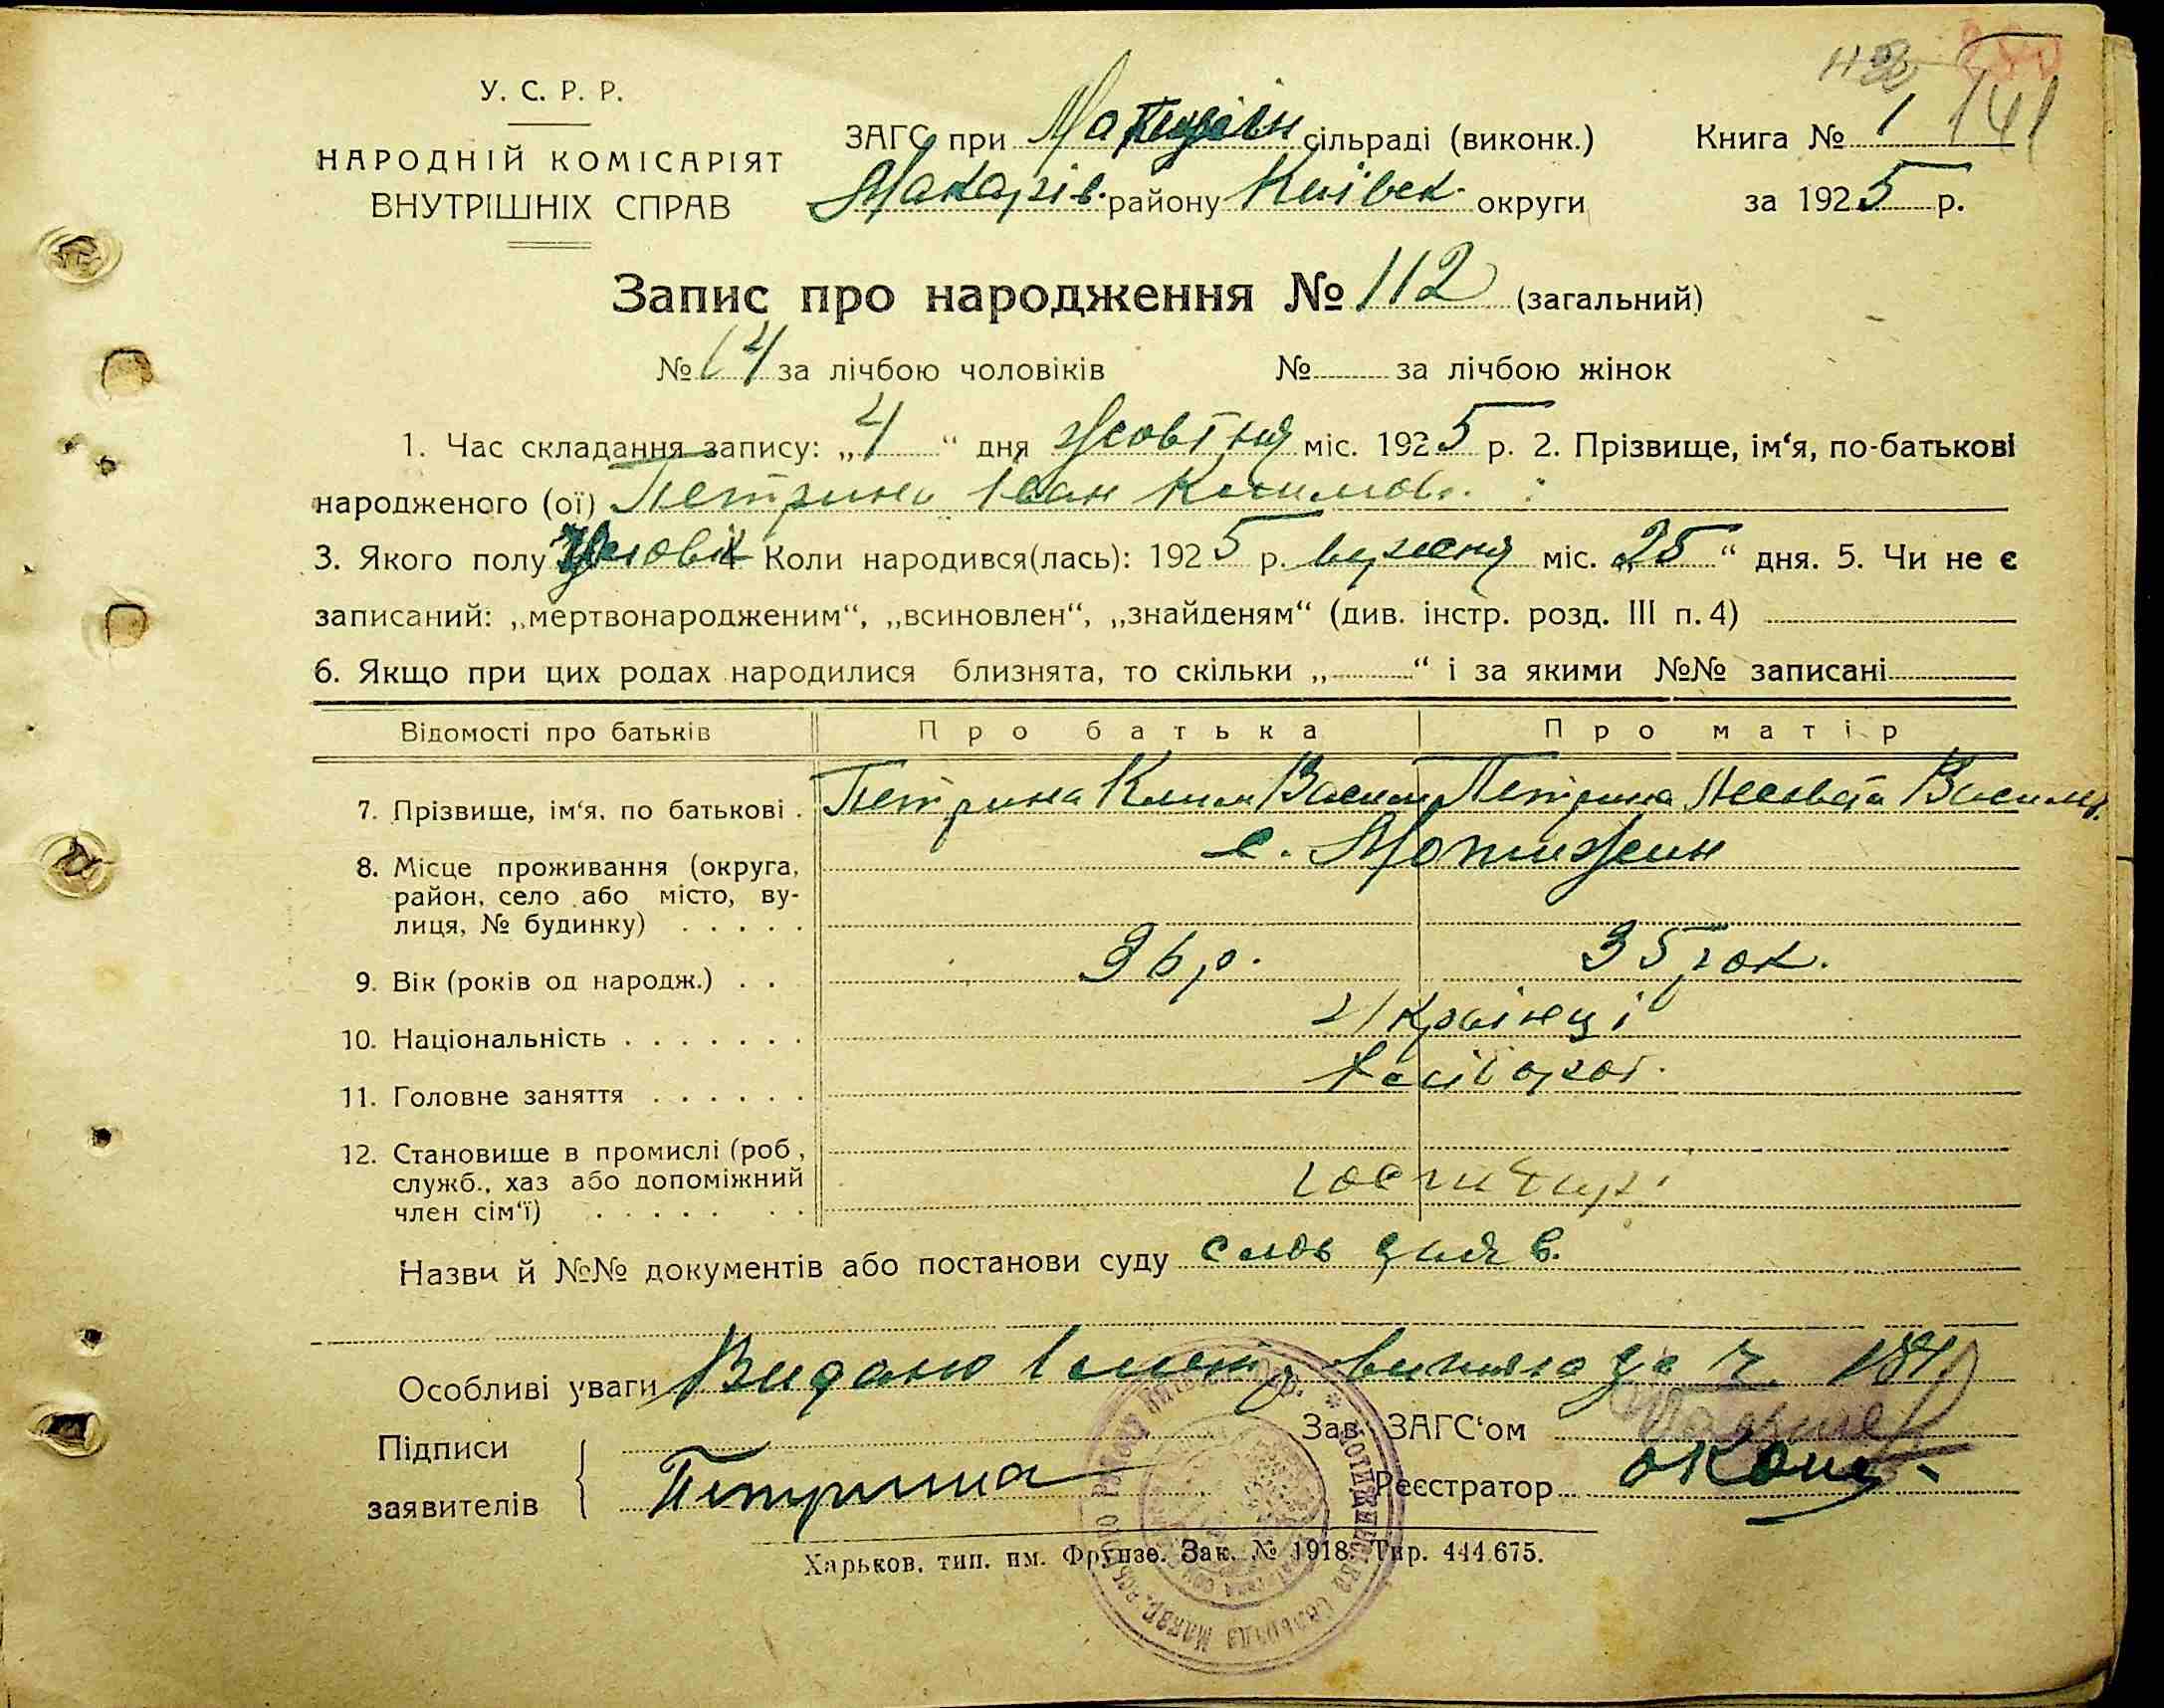 У. С. Р. Р.
НАРОДНІЙ КОМІСАРІЯТ
ВНУТРІШНІХ СПРАВ
ЗАГС при сільраді (виконк.)
Макарів. району Київськ. округи
Книга № 1 141
за 1925 р.
Запис про народження № 112 (загальний)
№ 64 за лічбою чоловіків № за лічбою жінок
1. Час складання запису: „4“ дня Жовтня міс. 1925 р. 2. Прізвище, ім‘я, по-батькові
народженого (ої) Петрина Іван Климов.
3. Якого полу Чоловік 4. Коли народився(лась): 1925 р. вересня міс. „25“ дня. 5. Чи не є
записаний: „мертвонародженим“, „всиновлен“, „знайденям“ (див. інстр. розд. III п. 4)
6. Якщо при цих родах народилися близнята, то скільки „ “ і за якими №№ записані
Відомості про батьків Про батька Про матір
7. Прізвище, ім‘я, по батькові . Петрина Клим Васил Петрина Васил.
8. Місце проживання (округа, с. Мотижин
район, село або місто, ву-
лиця, № будинку) . . . . .
9. Вік (років од народж.) . . 36 р. 35 рок.
10. Національність . . . . . . . Українці
11. Головне заняття . . . . . . Хлібороб.
12. Становище в промислі (роб.,
служб., хаз або допоміжний
член сім‘ї) . . . . . . .
Назви й №№ документів або постанови суду
Особливі уваги Видано
Підписи
заявителів Петрина
Зав. ЗАГС‘ом
Реєстратор
Харьков, тип. им. Фрунзе. Зак. № 1918. Тир. 444.675.